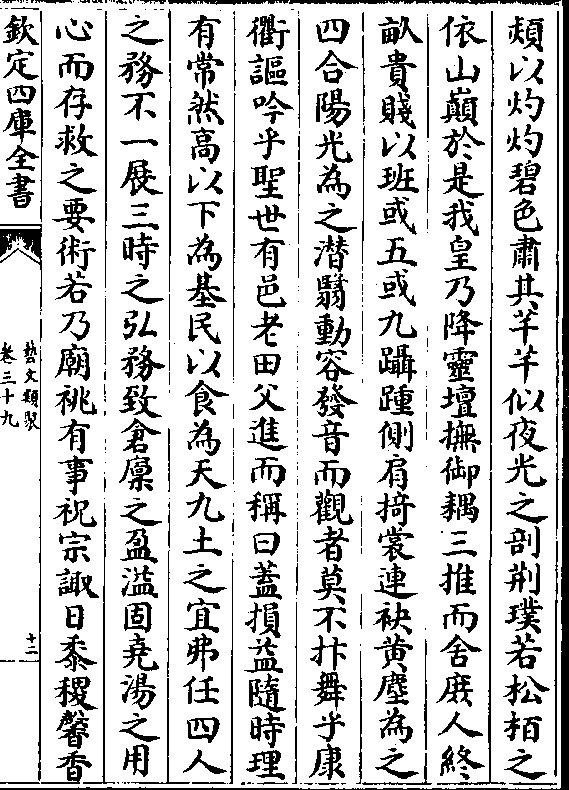 頳以灼灼碧色肅其芊芊似夜光之剖荆璞若松栢之
依山巔於是我皇乃降靈壇撫御耦三推而舍庶人終
畝貴賤以班或五或九躡踵側肩掎裳連袂黄塵為之
四合陽光為之潜翳動容發音而觀者莫不抃舞乎康
衢謳吟乎聖世有邑老田父進而稱曰蓋損益隨時理
有常然高以下為基民以食為天九土之宜弗任四人
之務不一展三時之弘務致倉廪之盈溢固堯湯之用
心而存救之要術若乃廟祧有事祝宗諏日黍稷馨香
欽定四庫全書
藝文類聚
卷三十九
十二